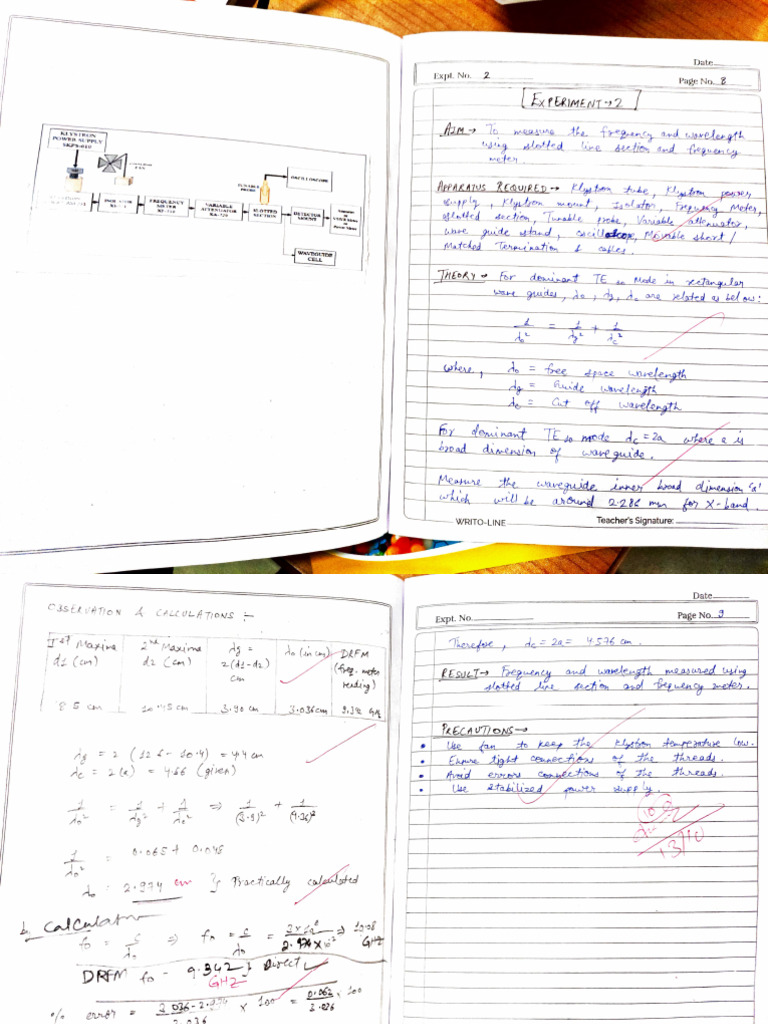 KLYSTRON
POWER SUPPLY
SKPS-610
OSCILLOSCOPE
TUNABLE
PROBE
ISOLATOR
FREQUENCY
METER
VARIABLE
ATTENUATOR
SLOTTED
SECTION
DETECTOR
MOUNT
WAVEGUIDE
CELL
Date
Expt. No. 2
Page No. 8
EXPERIMENT → 2
AIM → To measure the frequency and wavelength
using slotted line section and frequency
meter.
APPARATUS REQUIRED → Klystron tube, Klystron power
supply, Klystron mount, Isolator, Frequency Meter,
slotted section, Tunable probe, Variable attenuator,
wave guide stand, oscilloscope, Movable short/
Matched Termination & cables.
THEORY → For dominant TE10 Mode in rectangular
wave guides, λo, λg, λc are related as below:
1/λo² = 1/λg² + 1/λc²
where, λo = free space wavelength
λg = Guide wavelength
λc = Cut off wavelength
For dominant TE10 mode λc = 2a where a is
broad dimension of waveguide.
Measure the waveguide inner broad dimension 'a'
which will be around 2.286 mm for X-band.
WRITO-LINE
Teacher's Signature:
OBSERVATION & CALCULATIONS :-
Ist Maxima d1 (cm) 2nd Maxima d2 (cm) λg = 2(d1-d2) cm λo (in cm) DRFM (freq. meter reading)
8.5 cm 10.45 cm 3.90 cm 3.036 cm 9.342 GHz
λg = 2 (12.6 - 10.4) = 4.4 cm
λc = 2(a) = 4.56 (given)
1/λo² = 1/λg² + 1/λc² ⇒ 1/(3.9)² + 1/(4.56)²
1/λo² = 0.065 + 0.048
λo = 2.974 cm } Practically calculated
b) Calculation
fo = c/λo ⇒ fo = c/λo = 3×10⁸/2.974×10⁻² ⇒ 10.08 GHZ
DRFM fo - 9.342 } Direct
GHZ
% error = 3.036-2.974/3.036 × 100 = 0.062/3.036 × 100
Date
Expt. No.
Page No. 9
Therefore, λc = 2a = 4.576 cm.
RESULT → Frequency and wavelength measured using
slotted line section and frequency meter.
PRECAUTIONS →
• Use fan to keep the Klystron temperature low.
• Ensure tight connections of the threads.
• Avoid errors connections of the threads.
• Use stabilized power supply.